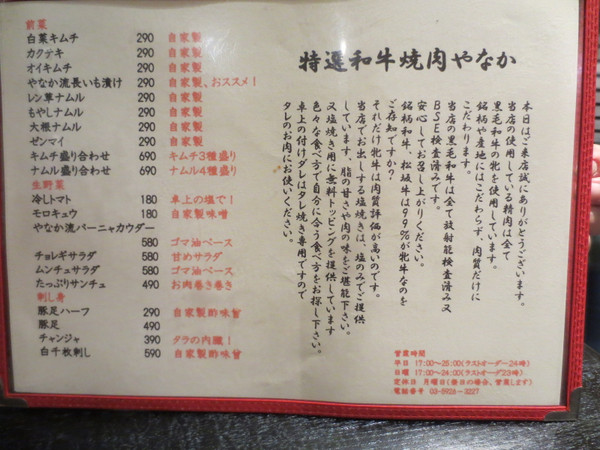 前菜
白菜キムチ 290 自家製
カクテキ 290 自家製
オイキムチ 290 自家製
やなか流長いも漬け 290 自家製、おススメ！
レン草ナムル 290 自家製
もやしナムル 290 自家製
大根ナムル 290 自家製
ゼンマイ 290 自家製
キムチ盛り合わせ 690 キムチ3種盛り
ナムル盛り合わせ 690 ナムル4種盛り
生野菜
冷しトマト 180 卓上の塩で！
モロキュウ 180 自家製味噌
やなか流バーニャカウダー
580 ゴマ油ベース
チョレギサラダ 580 甘めサラダ
ムンチュサラダ 580 ゴマ油ベース
たっぷりサンチュ 580 お肉巻き巻き
刺し身
豚足ハーフ 290 自家製酢味噌
豚足 490
チャンジャ 390 タラの内臓！
白千枚刺し 590 自家製酢味噌
特選和牛焼肉やなか
本日はご来店誠にありがとうございます。
当店の使用している精肉は全て
黒毛和牛の牝を使用しています。
銘柄や産地にはこだわらず、肉質だけに
こだわります。
当店の黒毛和牛は全て放射能検査済み又
BSE検査済みです。
安心してお召し上がりください。
銘柄和牛、松坂牛は99%が牝牛なのを
ご存知ですか？
それだけ牝牛は肉質評価が高いのです。
当店でお出しする塩焼きは、塩のみでご提供
しています、脂の甘さや肉の味をご堪能下さい。
又塩焼き用に無料トッピングを提供しています
色々な食べ方で自分に合う食べ方をお探し下さい。
卓上の付けダレはタレ焼き専用ですので
タレのお肉にお使いください。
営業時間
平日 17:00～25:00(ラストオーダー24時)
日曜 17:00～24:00(ラストオーダ23時)
定休日 月曜日(祭日の場合、営業します)
電話番号 03-5928-3227